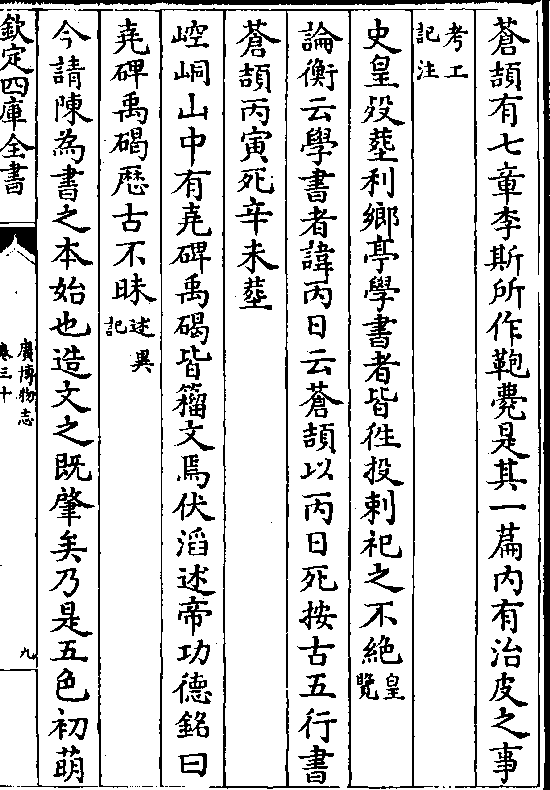 蒼頡有七章李斯所作鞄㼱是其一篇内有治皮之事
考工
記注
史皇歿塟利鄉亭學書者皆徃投刺祀之不絶皇
覽
論衡云學書者諱丙日云蒼頡以丙日死按古五行書
蒼頡丙寅死辛未塟
崆峒山中有堯碑禹碣皆籀文焉伏滔述帝功德銘曰
堯碑禹碣歴古不昧述異
記
今請陳為書之本始也造文之既肇矣乃是五色初萌
欽定四庫全書
廣博物志
卷三十
九